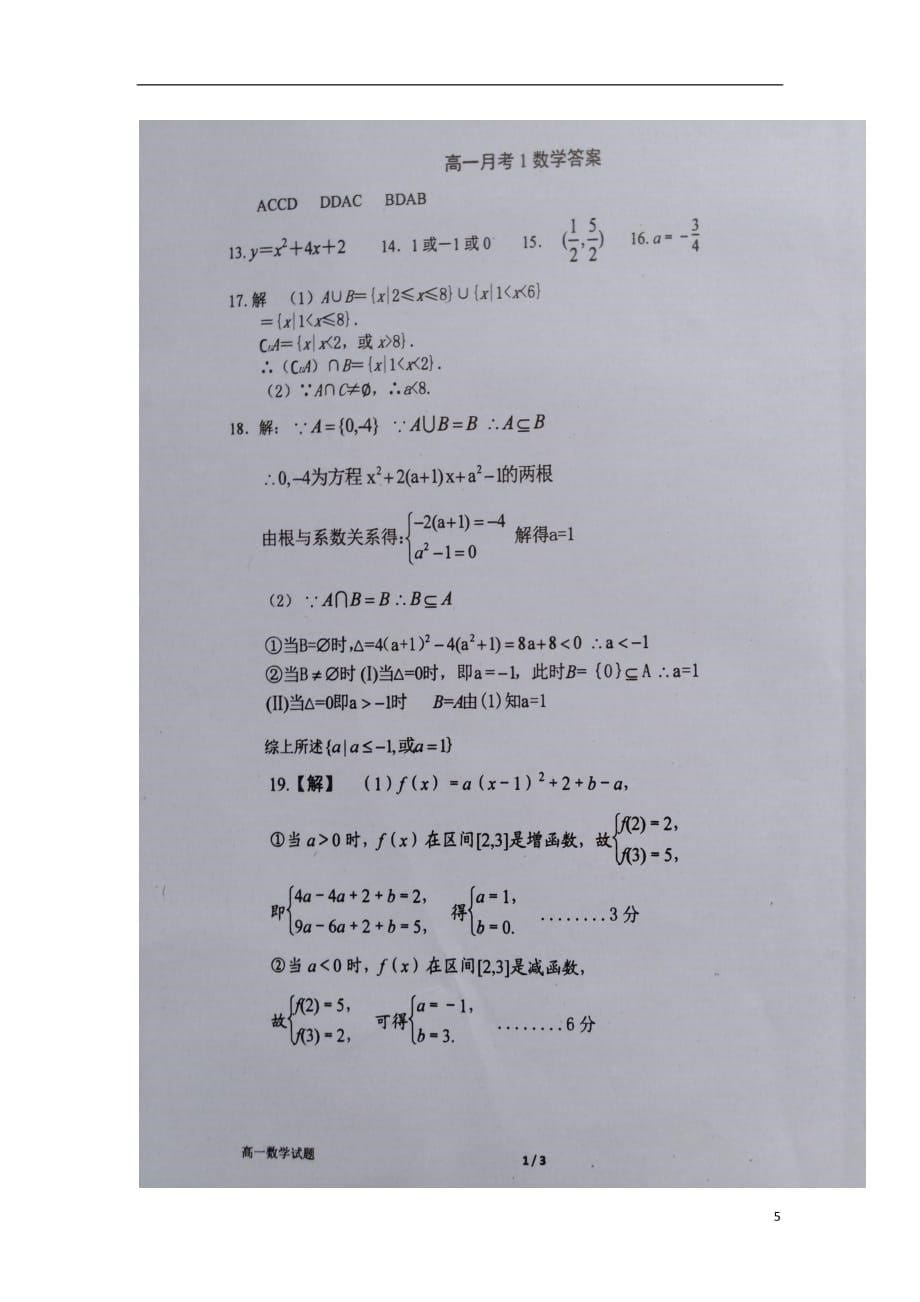 高一月考1数学答案
ACCD DDAC BDAB
13.y=x²+4x+2 14. 1或−1或0 15. (1/2,5/2) 16.a=-3/4
17.解 (1)A∪B={x|2≤x≤8}∪{x|1<x<6}
={x|1<x≤8}.
∁UA={x|x<2，或x>8}.
∴(∁UA)∩B={x|1<x<2}.
(2)∵A∩C≠∅，∴a<8.
18. 解：∵A={0,-4} ∵A∪B=B ∴A⊆B
∴0,-4为方程x²+2(a+1)x+a²-1的两根
由根与系数关系得:{-2(a+1)=-4 a²-1=0 解得a=1
(2) ∵A∩B=B∴B⊆A
①当B=∅时,△=4(a+1)²-4(a²+1)=8a+8<0 ∴a<-1
②当B≠∅时(I)当△=0时，即a=-1，此时B={0}⊆A ∴a=1
(II)当△=0即a>-1时 B=A由(1)知a=1
综上所述{a|a≤-1,或a=1}
19.【解】 (1)f(x)=a(x-1)²+2+b-a,
①当a>0时，f(x)在区间[2,3]是增函数，故{f(2)=2, f(3)=5,
即{4a-4a+2+b=2, 9a-6a+2+b=5, 得{a=1, b=0. ........3分
②当a<0时，f(x)在区间[2,3]是减函数，
故{f(2)=5, f(3)=2, 可得{a=-1, b=3. ........6分
高一数学试题
1/3
5